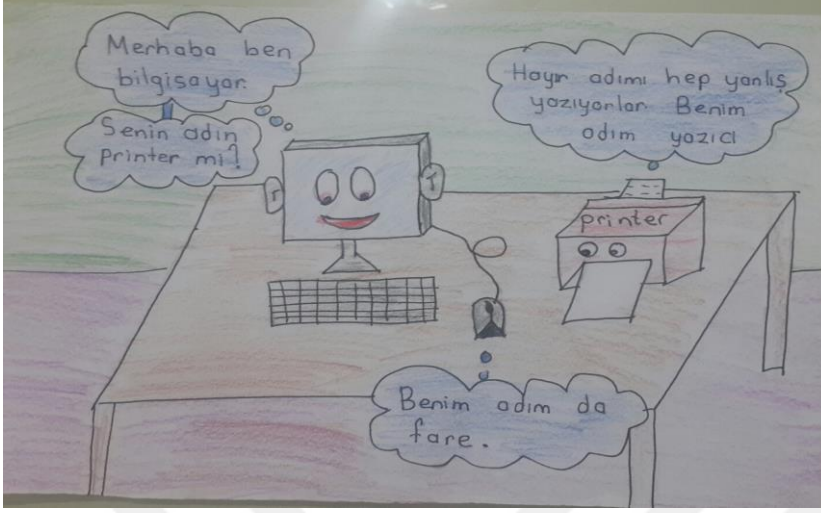 Merhaba ben
bilgisayar.
Senin adın
Printer mi?
Hayır adımı hep yanlış
yazıyorlar. Benim
adım yazıcı
printer
Benim adım da
fare.